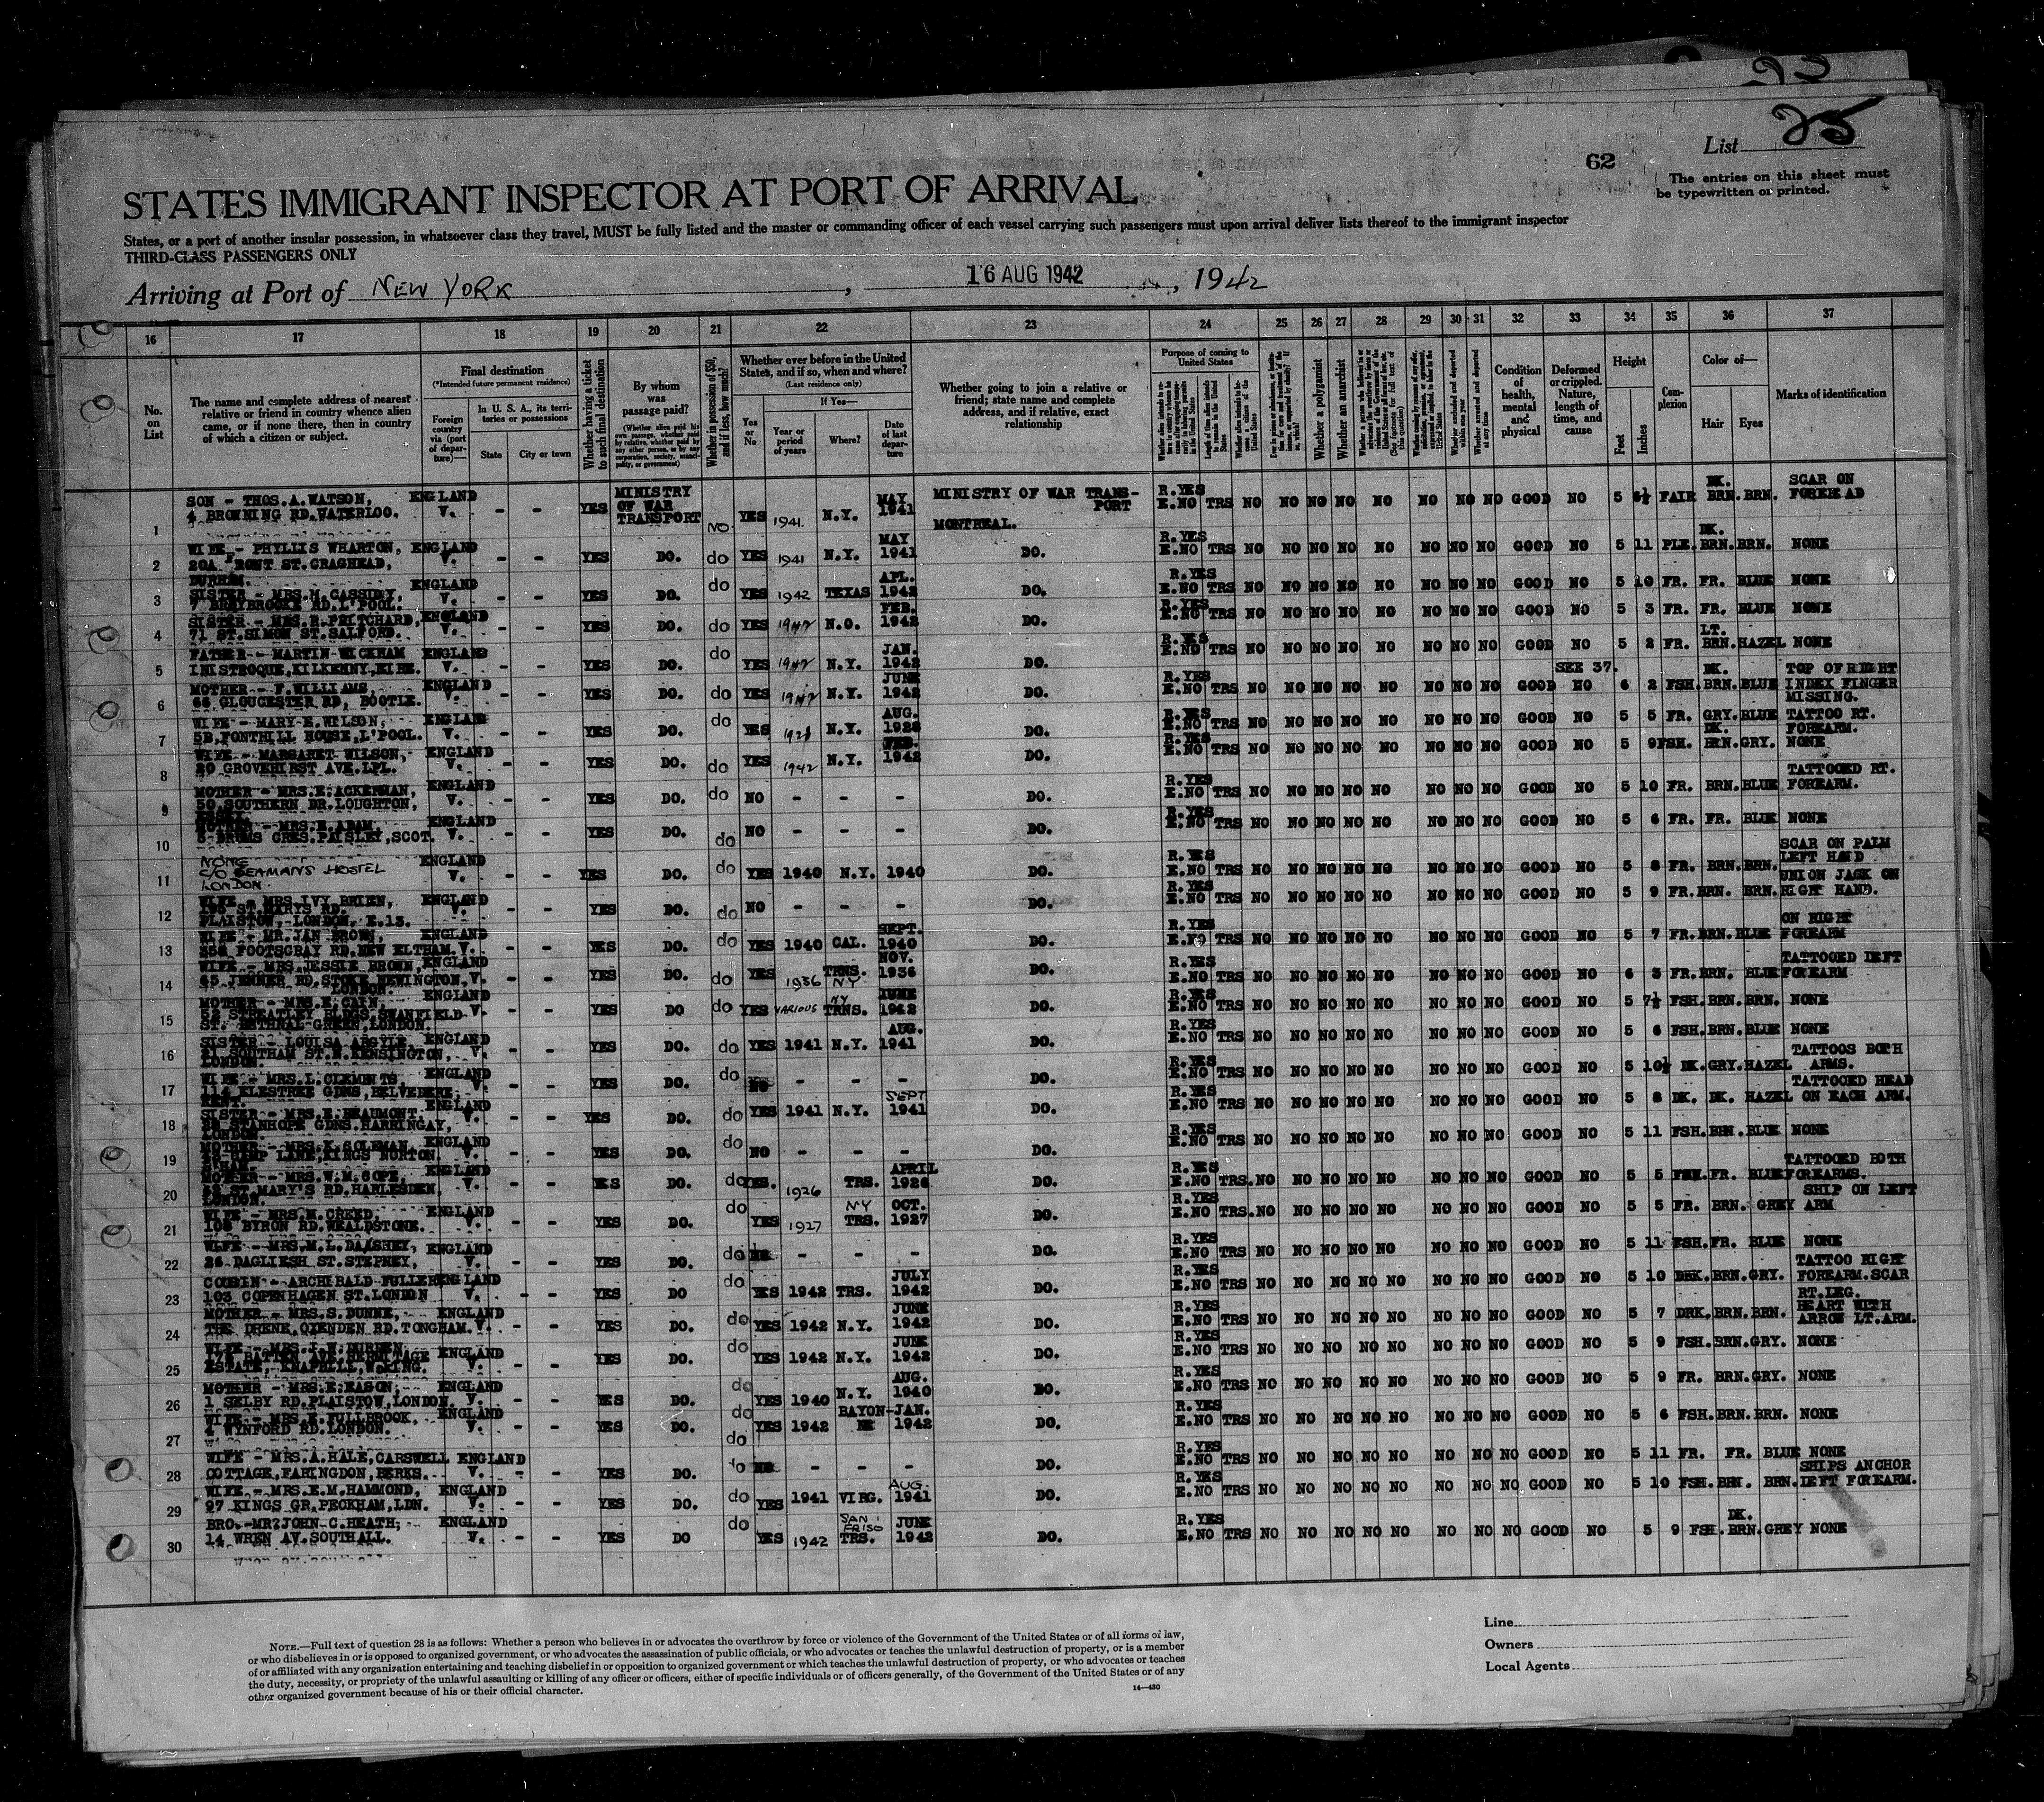 List 25
62
The entries on this sheet must
be typewritten or printed.
STATES IMMIGRANT INSPECTOR AT PORT OF ARRIVAL
States, or a port of another insular possession, in whatsoever class they travel, MUST be fully listed and the master or commanding officer of each vessel carrying such passengers must upon arrival deliver lists thereof to the immigrant inspector
THIRD-CLASS PASSENGERS ONLY
Arriving at Port of NEW YORK, 16 AUG 1942, 1942
16 17 18 19 20 21 22 23 24 25 26 27 28 29 30 31 32 33 34 35 36 37
No. on List
The name and complete address of nearest relative or friend in country whence alien came, or if none there, then in country of which a citizen or subject.
Final destination
(*Intended future permanent residence)
Foreign country via (port of departure)—
In U. S. A., its territories or possessions
State City or town
Whether having a ticket to such final destination
By whom was passage paid?
Whether in possession of $50, and if less, how much?
Whether ever before in the United States, and if so, when and where?
(Last residence only)
Yes or No
If Yes—
Year or period of years
Where?
Date of last departure
Whether going to join a relative or friend; state name and complete address, and if relative, exact relationship
Purpose of coming to United States
Whether a polygamist
Whether an anarchist
Condition of health, mental and physical
Deformed or crippled. Nature, length of time, and cause
Height
Feet Inches
Complexion
Color of—
Hair Eyes
Marks of identification
1 SON - THOS.A.WATSON, 4 BROWNING RD.WATERLOO. ENGLAND V. - - YES MINISTRY OF WAR TRANSPORT NO YES 1941 N.Y. MAY 1941 MINISTRY OF WAR TRANSPORT MONTREAL. R.YES E.NO TRS NO NO NO NO NO NO NO NO GOOD NO 5 6½ FAIR DK. BRN. BRN. SCAR ON FOREHEAD
2 WIFE - PHYLLIS WHARTON, 20A FRONT ST.CRAGHEAD, DURHAM. ENGLAND V. - - YES DO. do YES 1941 N.Y. MAY 1941 DO. R.YES E.NO TRS NO NO NO NO NO NO NO NO GOOD NO 5 11 PLE. DK. BRN. BRN. NONE
3 SISTER - MRS.H.CASSIDY, 7 BRAYBROOKE RD.L'POOL. ENGLAND V. - - YES DO. do YES 1942 TEXAS APL. 1942 DO. R.YES E.NO TRS NO NO NO NO NO NO NO NO GOOD NO 5 10 FR. FR. BLUE NONE
4 SISTER - MRS.R.PRITCHARD, 71 ST.SIMON ST.SALFORD. ENGLAND V. - - YES DO. do YES 1942 N.O. FEB. 1942 DO. R.YES E.NO TRS NO NO NO NO NO NO NO NO GOOD NO 5 3 FR. FR. BLUE NONE
5 FATHER - MARTIN WICKHAM INISTROQUE,KILKENNY,EIRE. ENGLAND V. - - YES DO. do YES 1942 N.Y. JAN. 1942 DO. R.YES E.NO TRS NO NO NO NO NO NO NO NO GOOD NO 5 2 FR. LT. BRN. HAZEL NONE
6 MOTHER - F.WILLIAMS, 66 GLOUCESTER RD, BOOTLE. ENGLAND V. - - YES DO. do YES 1942 N.Y. JUNE 1942 DO. R.YES E.NO TRS NO NO NO NO NO NO NO NO GOOD SEE 37. NO 6 2 FSH. DK. BRN. BLUE TOP OF RIGHT INDEX FINGER MISSING.
7 WIFE - MARY E.WILSON, 5B,FONTHILL HOUSE,L'POOL. ENGLAND V. - - YES DO. do YES 1928 N.Y. AUG. 1928 DO. R.YES E.NO TRS NO NO NO NO NO NO NO NO GOOD NO 5 5 FR. GRY. BLUE TATTOO RT. FOREARM.
8 WIFE - MARGARET WILSON, 20 GROVEHURST AVE.LPL. ENGLAND V. - - YES DO. do YES 1942 N.Y. FEB. 1942 DO. R.YES E.NO TRS NO NO NO NO NO NO NO NO GOOD NO 5 9 FSH. DK. BRN. GRY. NONE
9 MOTHER - MRS.E.ACKERMAN, 50,SOUTHERN DR.LOUGHTON, ENGLAND V. - - YES DO. do NO - - - DO. R.YES E.NO TRS NO NO NO NO NO NO NO NO GOOD NO 5 10 FR. BRN. BLUE TATTOOED RT. FOREARM.
10 MOTHER - MRS.E.ADAM, CRES.PAISLEY,SCOT. ENGLAND V. - - YES DO. do NO - - - DO. R.YES E.NO TRS NO NO NO NO NO NO NO NO GOOD NO 5 6 FR. FR. BLUE NONE
11 NONE C/O SEAMANS HOSTEL LONDON. ENGLAND V. - - YES DO. do YES 1940 N.Y. 1940 DO. R.YES E.NO TRS NO NO NO NO NO NO NO NO GOOD NO 5 8 FR. BRN. BRN. SCAR ON PALM LEFT HAND
12 WIFE - MRS.IVY BRIEN, ST.MARYS RD. PLAISTOW, LONDON, E.13. ENGLAND V. - - YES DO. do NO - - - DO. R.YES E.NO TRS NO NO NO NO NO NO NO NO GOOD NO 5 9 FR. BRN. BRN. UNION JACK ON RIGHT HAND.
13 WIFE - MR.JAN BROWN, FOOTSCRAY RD.NEW ELTHAM. ENGLAND V. - - YES DO. do YES 1940 CAL. SEPT. 1940 DO. R.YES E.NO TRS NO NO NO NO NO NO NO NO GOOD NO 5 7 FR. BRN. BLUE ON RIGHT FOREARM
14 WIFE - MRS.JESSIE BROWN, 65 JENNER RD.STOKE NEWINGTON, LONDON. ENGLAND V. - - YES DO. do YES 1936 TRNS. NY NOV. 1936 DO. R.YES E.NO TRS NO NO NO NO NO NO NO NO GOOD NO 6 3 FR. BRN. BLUE TATTOOED LEFT FOREARM
15 MOTHER - MRS.E.CAIN, 52 STREATLEY BLDGS.SWANFIELD ST. BETHNAL GREEN,LONDON. ENGLAND V. - - YES DO do YES VARIOUS NY TRNS. JUNE 1942 DO. R.YES E.NO TRS NO NO NO NO NO NO NO NO GOOD NO 5 7½ FSH. BRN. BRN. NONE
16 SISTER - LOUISA ARGYLE, 21 SOUTHAM ST.N.KENSINGTON, LONDON. ENGLAND V. - - YES DO. do YES 1941 N.Y. AUG. 1941 DO. R.YES E.NO TRS NO NO NO NO NO NO NO NO GOOD NO 5 6 FSH. BRN. BLUE NONE
17 WIFE - MRS.L.CLEMENTS, 114 ELESTREE GDNS,BELVEDERE, KENT. ENGLAND V. - - YES DO. do NO - - - DO. R.YES E.NO TRS NO NO NO NO NO NO NO NO GOOD NO 5 10½ DK. GRY. HAZEL TATTOOS BOTH ARMS.
18 SISTER - MRS.E.BEAUMONT, STANHOPE GDNS.HARRINGAY, LONDON. ENGLAND - - YES DO. do YES 1941 N.Y. SEPT 1941 DO. R.YES E.NO TRS NO NO NO NO NO NO NO NO GOOD NO 5 8 DK. DK. HAZEL TATTOOED HEAD ON EACH ARM.
19 MOTHER - MRS.K.COLEMAN, CAMP LANE,KINGS NORTON. B'HAM. ENGLAND V. - - YES DO. do NO - - - DO. R.YES E.NO TRS NO NO NO NO NO NO NO NO GOOD NO 5 11 FSH. BRN. BLUE NONE
20 MOTHER - MRS.W.M.COPE, ST.MARY'S RD.HARLESDEN, LONDON. ENGLAND V. - - YES DO. do YES. 1926 TRS. APRIL 1926 DO. R.YES E.NO TRS. NO NO NO NO NO NO NO NO GOOD NO 5 5 FSH. FR. BLUE TATTOOED BOTH FOREARMS.
21 WIFE - MRS.M.CREED. 108 BYRON RD.WEALDSTONE. ENGLAND V. - - YES DO. do YES 1927 NY TRS. OCT. 1927 DO. R.YES E.NO TRS. NO NO NO NO NO NO NO NO GOOD NO 5 5 FR. BRN. GREY SHIP ON LEFT ARM
22 WIFE - MRS.M.L. 26 DAGLIESH ST.STEPNEY, ENGLAND V. - - YES DO. do NO - - - DO. R.YES E.NO TRS NO NO NO NO NO NO NO NO GOOD NO 5 11 FSH. FR. BLUE NONE
23 COUSIN - ARCHIBALD FULLER 103 COPENHAGEN ST.LONDON ENGLAND V. - - YES DO do YES 1942 TRS. JULY 1942 DO. R.YES E.NO TRS NO NO NO NO NO NO NO NO GOOD NO 5 10 DRK. BRN. GRY. TATTOO RIGHT FOREARM.SCAR RT.LEG.
24 MOTHER - MRS.S.DUNNE, THE DRENE,OXENDEN RD.TONGHAM. ENGLAND V. - - YES DO. do YES 1942 N.Y. JUNE 1942 DO. R.YES E.NO TRS NO NO NO NO NO NO NO NO GOOD NO 5 7 DRK. BRN. BRN. HEART WITH ARROW LT.ARM.
25 WIFE - HERMITAGE ESTATE, ENGLAND V. - - YES DO. do YES 1942 N.Y. JUNE 1942 DO. R.YES E.NO TRS NO NO NO NO NO NO NO NO GOOD NO 5 9 FSH. BRN. GRY. NONE
26 MOTHER - MRS.E.EASON, 1 SELBY RD.PLAISTOW,LONDON. ENGLAND V. - - YES DO. do YES 1940 N.Y. AUG. 1940 DO. R.YES E.NO TRS NO NO NO NO NO NO NO NO GOOD NO 5 9 FR. BRN. GRY. NONE
27 WIFE - MRS.E.FULLBROOK, 4 WYNFORD RD.LONDON. ENGLAND V. - - YES DO. do YES 1942 BAYON- NE JAN. 1942 DO. R.YES E.NO TRS NO NO NO NO NO NO NO NO GOOD NO 5 6 FSH. BRN. BRN. NONE
28 WIFE - MRS.A.HALE,CARSWELL COTTAGE,FARINGDON,BERKS. ENGLAND V. - - YES DO. do NO - - - DO. R.YES E.NO TRS NO NO NO NO NO NO NO NO GOOD NO 5 11 FR. FR. BLUE NONE
29 WIFE - MRS.E.M.HAMMOND, 97 KINGS GR.PECKHAM,LDN. ENGLAND V. - - YES DO. do YES 1941 VIRG. AUG. 1941 DO. R.YES E.NO TRS NO NO NO NO NO NO NO NO GOOD NO 5 10 FSH. BRN. BRN. SHIPS ANCHOR LEFT FOREARM.
30 BRO.-MR.JOHN C.HEATH, 14 WREN AV.SOUTHALL. ENGLAND V. - - YES DO do YES 1942 SAN FRISO TRS. JUNE 1942 DO. R.YES E.NO TRS NO NO NO NO NO NO NO NO GOOD NO 5 9 FSH. DK. BRN. GREY NONE
NOTE.—Full text of question 28 is as follows: Whether a person who believes in or advocates the overthrow by force or violence of the Government of the United States or of all forms of law,
or who disbelieves in or is opposed to organized government, or who advocates the assassination of public officials, or who advocates or teaches the unlawful destruction of property, or is a member
of or affiliated with any organization entertaining and teaching disbelief in or opposition to organized government or which teaches the unlawful destruction of property, or who advocates or teaches
the duty, necessity, or propriety of the unlawful assaulting or killing of any officer or officers, either of specific individuals or of officers generally, of the Government of the United States or of any
other organized government because of his or their official character.
14—430
Line
Owners
Local Agents